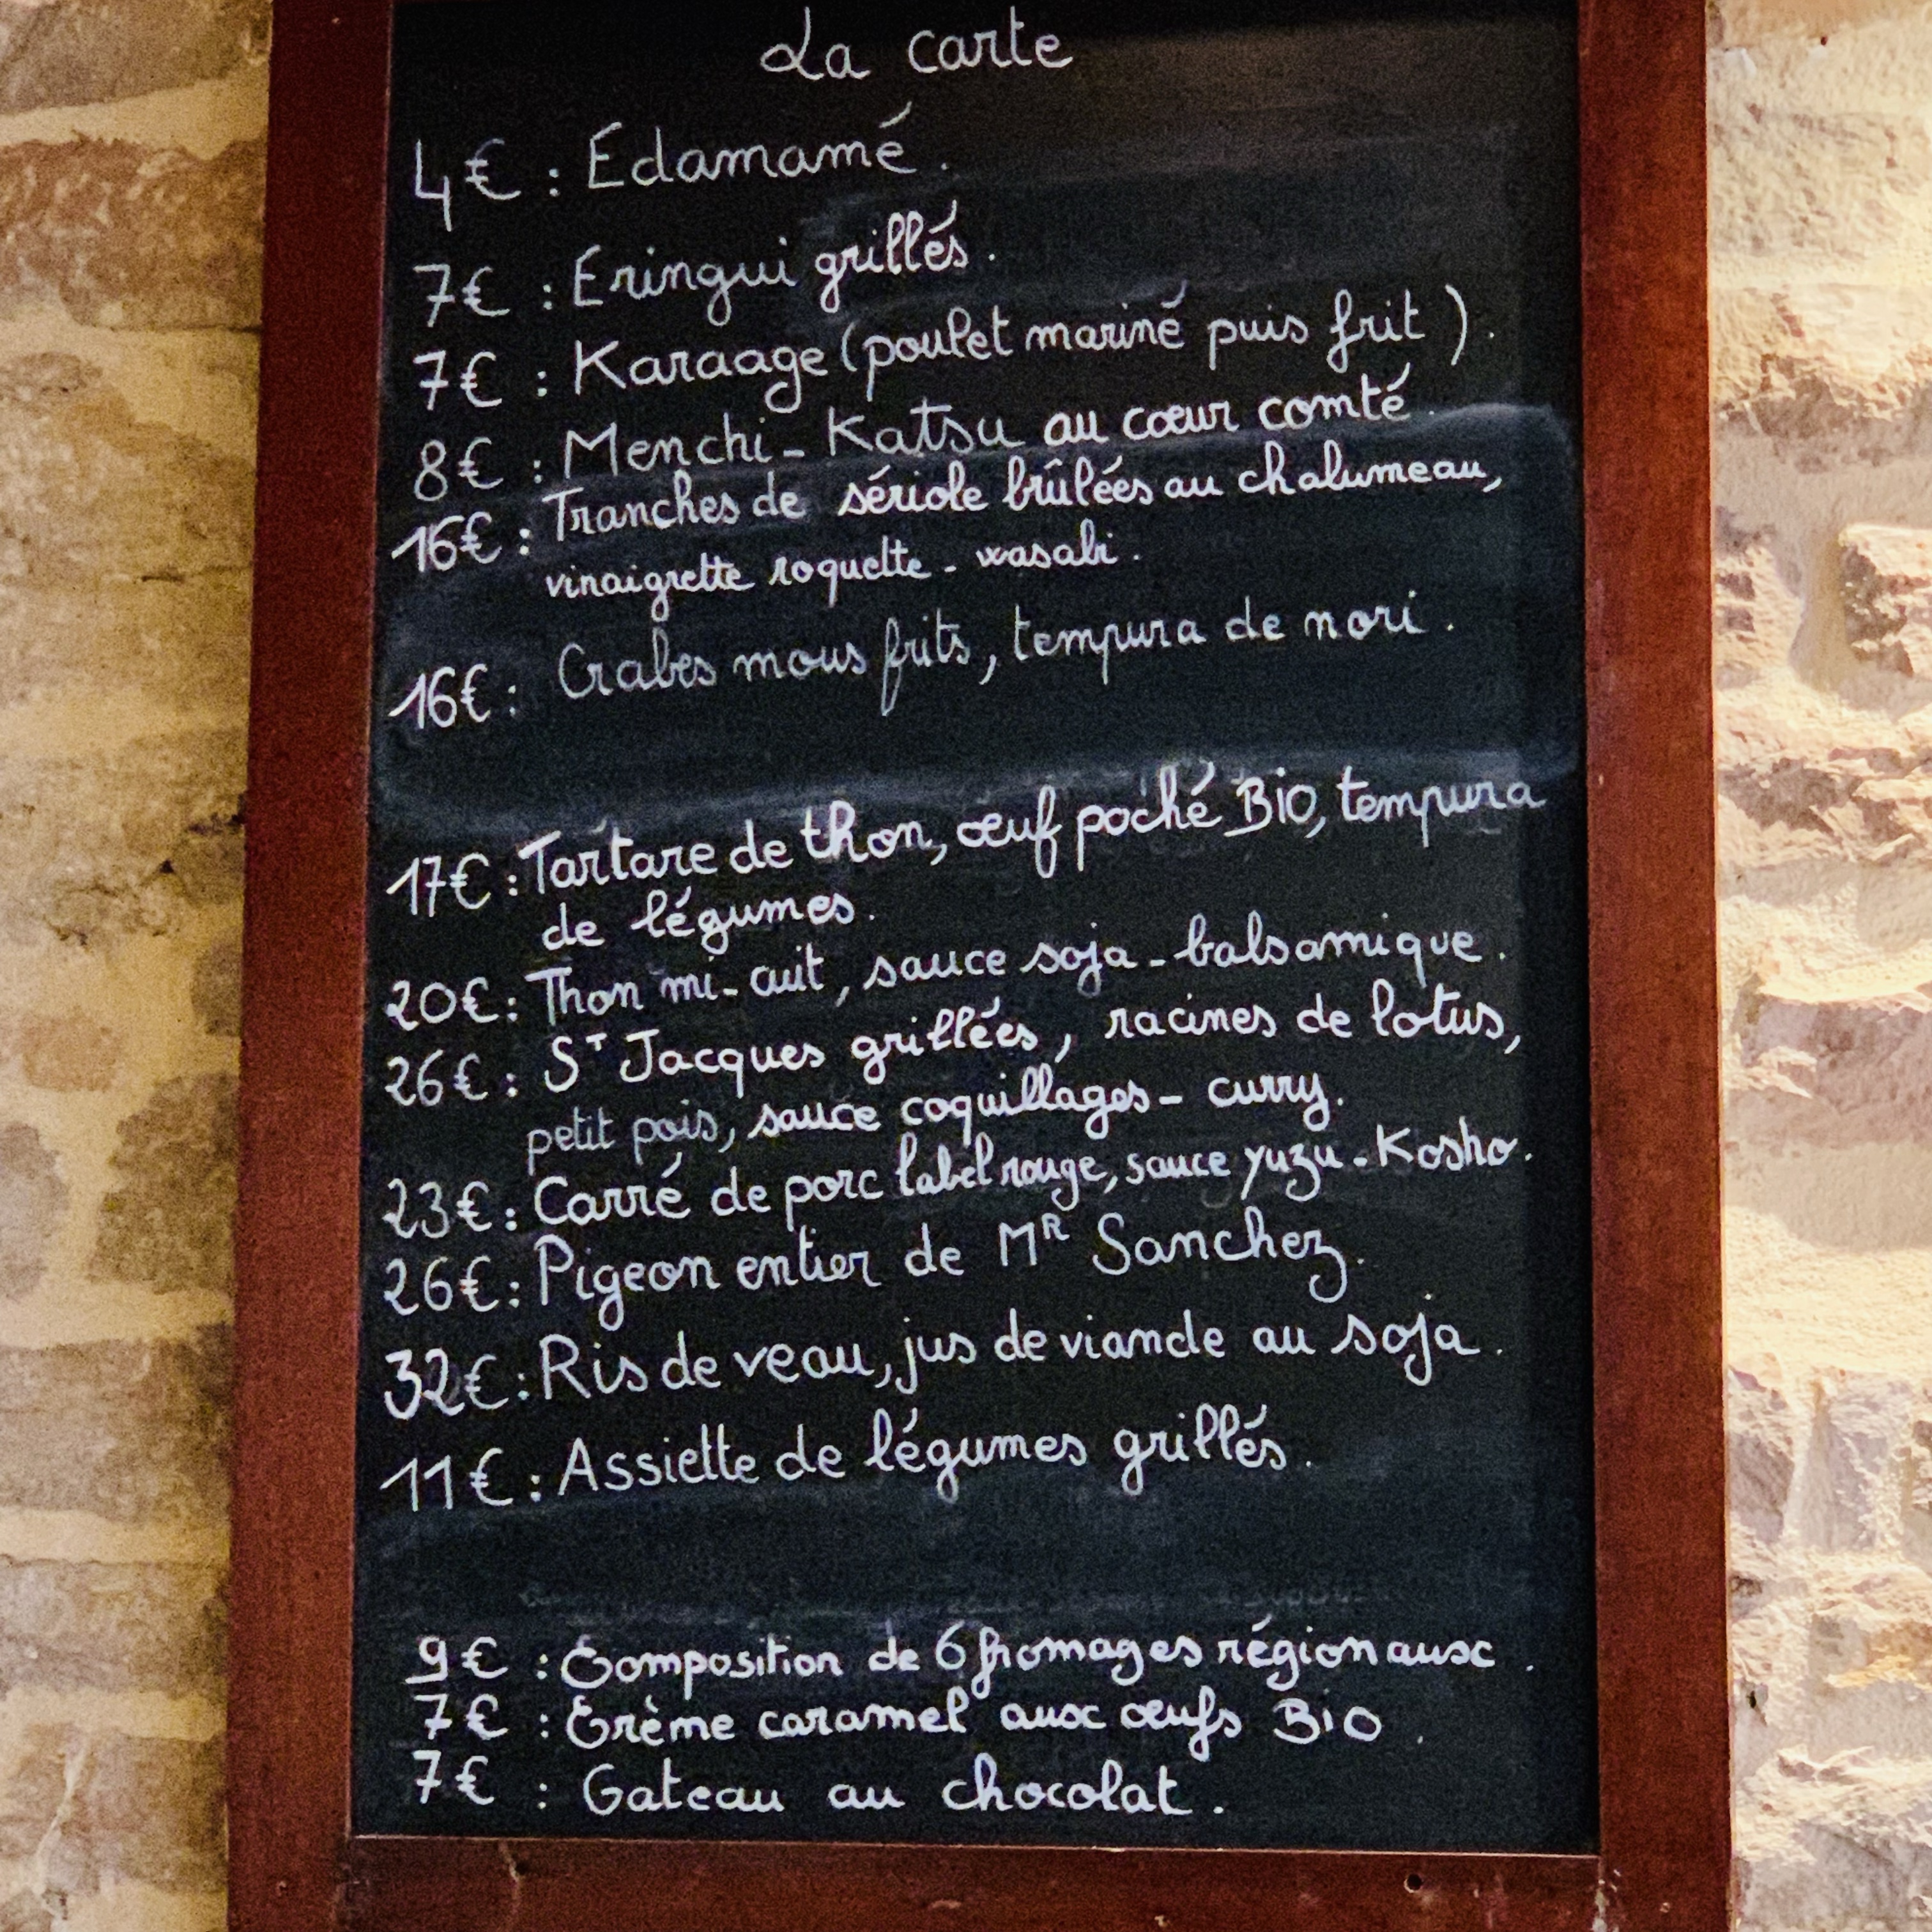 La carte
4€ : Edamamé.
7€ : Eringui grillés.
7€ : Karaage (poulet mariné puis frit).
8€ : Menchi-Katsu au cœur comté.
16€ : Tranches de sériole brûlées au chalumeau,
vinaigrette roquette - wasabi.
16€ : Crabes mous frits, tempura de nori.
17€ : Tartare de thon, œuf poché Bio, tempura
de légumes.
20€ : Thon mi-cuit, sauce soja - balsamique.
26€ : ST Jacques grillées, racines de lotus,
petit pois, sauce coquillages - curry.
23€ : Carré de porc label rouge, sauce yuzu-Kosho.
26€ : Pigeon entier de MR Sanchez.
32€ : Ris de veau, jus de viande au soja.
11€ : Assiette de légumes grillés.
9€ : Composition de 6 fromages régionaux.
7€ : Crème caramel aux œufs Bio.
7€ : Gateau au chocolat.